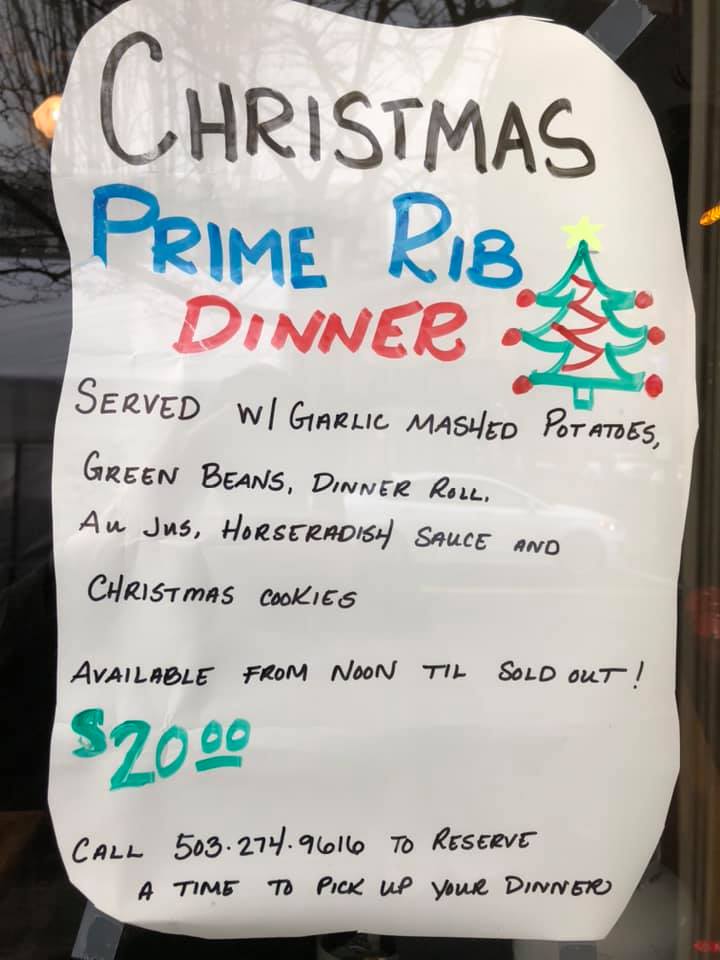 CHRISTMAS
PRIME RIB
DINNER
SERVED W/ GARLIC MASHED POTATOES,
GREEN BEANS, DINNER ROLL,
AU JUS, HORSERADISH SAUCE AND
CHRISTMAS COOKIES
AVAILABLE FROM NOON TIL SOLD OUT!
$20.00
CALL 503.274.9616 TO RESERVE
A TIME TO PICK UP YOUR DINNER